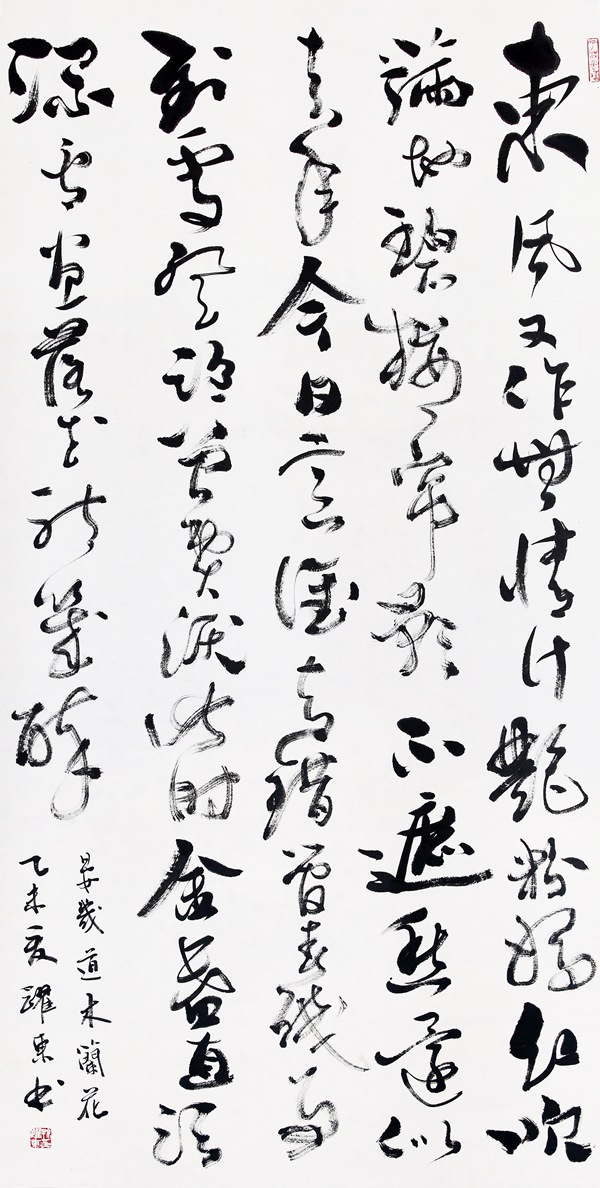 東風又作無情计艷粉嬌紅吹
滿地碧樓簾影不遮愁還似
去年今日意誰知錯管春殘事
到處登臨曾費淚此時金盞直須
深看盡落花能幾醉
晏幾道木蘭花
乙未夏躍東書